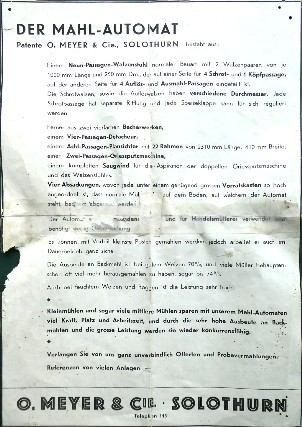 DER MAHL-AUTOMAT
Patente O. MEYER & Cie., SOLOTHURN besteht aus:
Einem Neun-Passagen-Walzenstuhl normaler Bauart mit 2 Walzenpaaren von je
1000 mm Länge und 250 mm Dm., die auf einer Seite für 4 Schrot- und 1 Kopfpassage,
auf der anderen Seite für 4 Auflös- und Ausmahl-Passagen eingeteilt ist.
Die Schrotwalzen, sowie die Auflöswalzen haben verschiedene Durchmesser. Jede
Schrotpassage hat separate Riffelung und jede Speisewalze kann für sich reguliert
werden.
Ferner aus zwei vierfachen Becherwerken,
einem Vier-Passagen-Detacheur,
einem Acht-Passagen-Plansichter mit 22 Rahmen von 2310 mm Länge, 410 mm Breite,
einer Zwei-Passagen-Griessputzmaschine,
einem kompletten Saugwind für die Aspiration der doppelten Griessputzmaschine
und des Walzenstuhles.
Vier Absackungen, wovon jede unter einem genügend grossen Vorratskasten so hoch
angeordnet ist, dass von die auf dem Boden, auf welchem der Automat
steht, bequem abgesackt werden
Der Automat und für Handelsmüllerei verwendet
benötigt wenig
Es können mit Vorteil kleinere Posten gemahlen werden, jedoch arbeitet er auch im
Dauerbetrieb ganz sicher.
Die Ausbeute an Backmehl ist bei gutem Weizen 70%, und viele Müller behaupten,
schon oft viel mehr herausgemahlen zu haben, sogar bis 74%.
Auch bei feuchtem Weizen und Roggen ist die Leistung sehr
Kleinmühlen und sogar viele mittlere Mühlen sparen mit unserem Mahl-Automaten
viel Kraft, Platz und Arbeitszeit, und durch die sehr hohe Ausbeute an Back-
mehlen und die grosse Leistung werden sie wieder konkurrenzfähig.
Verlangen Sie von uns ganz unverbindlich Offerten und Probevermahlungen.
Referenzen von vielen Anlagen
O. MEYER & CIE. · SOLOTHURN
Telephon